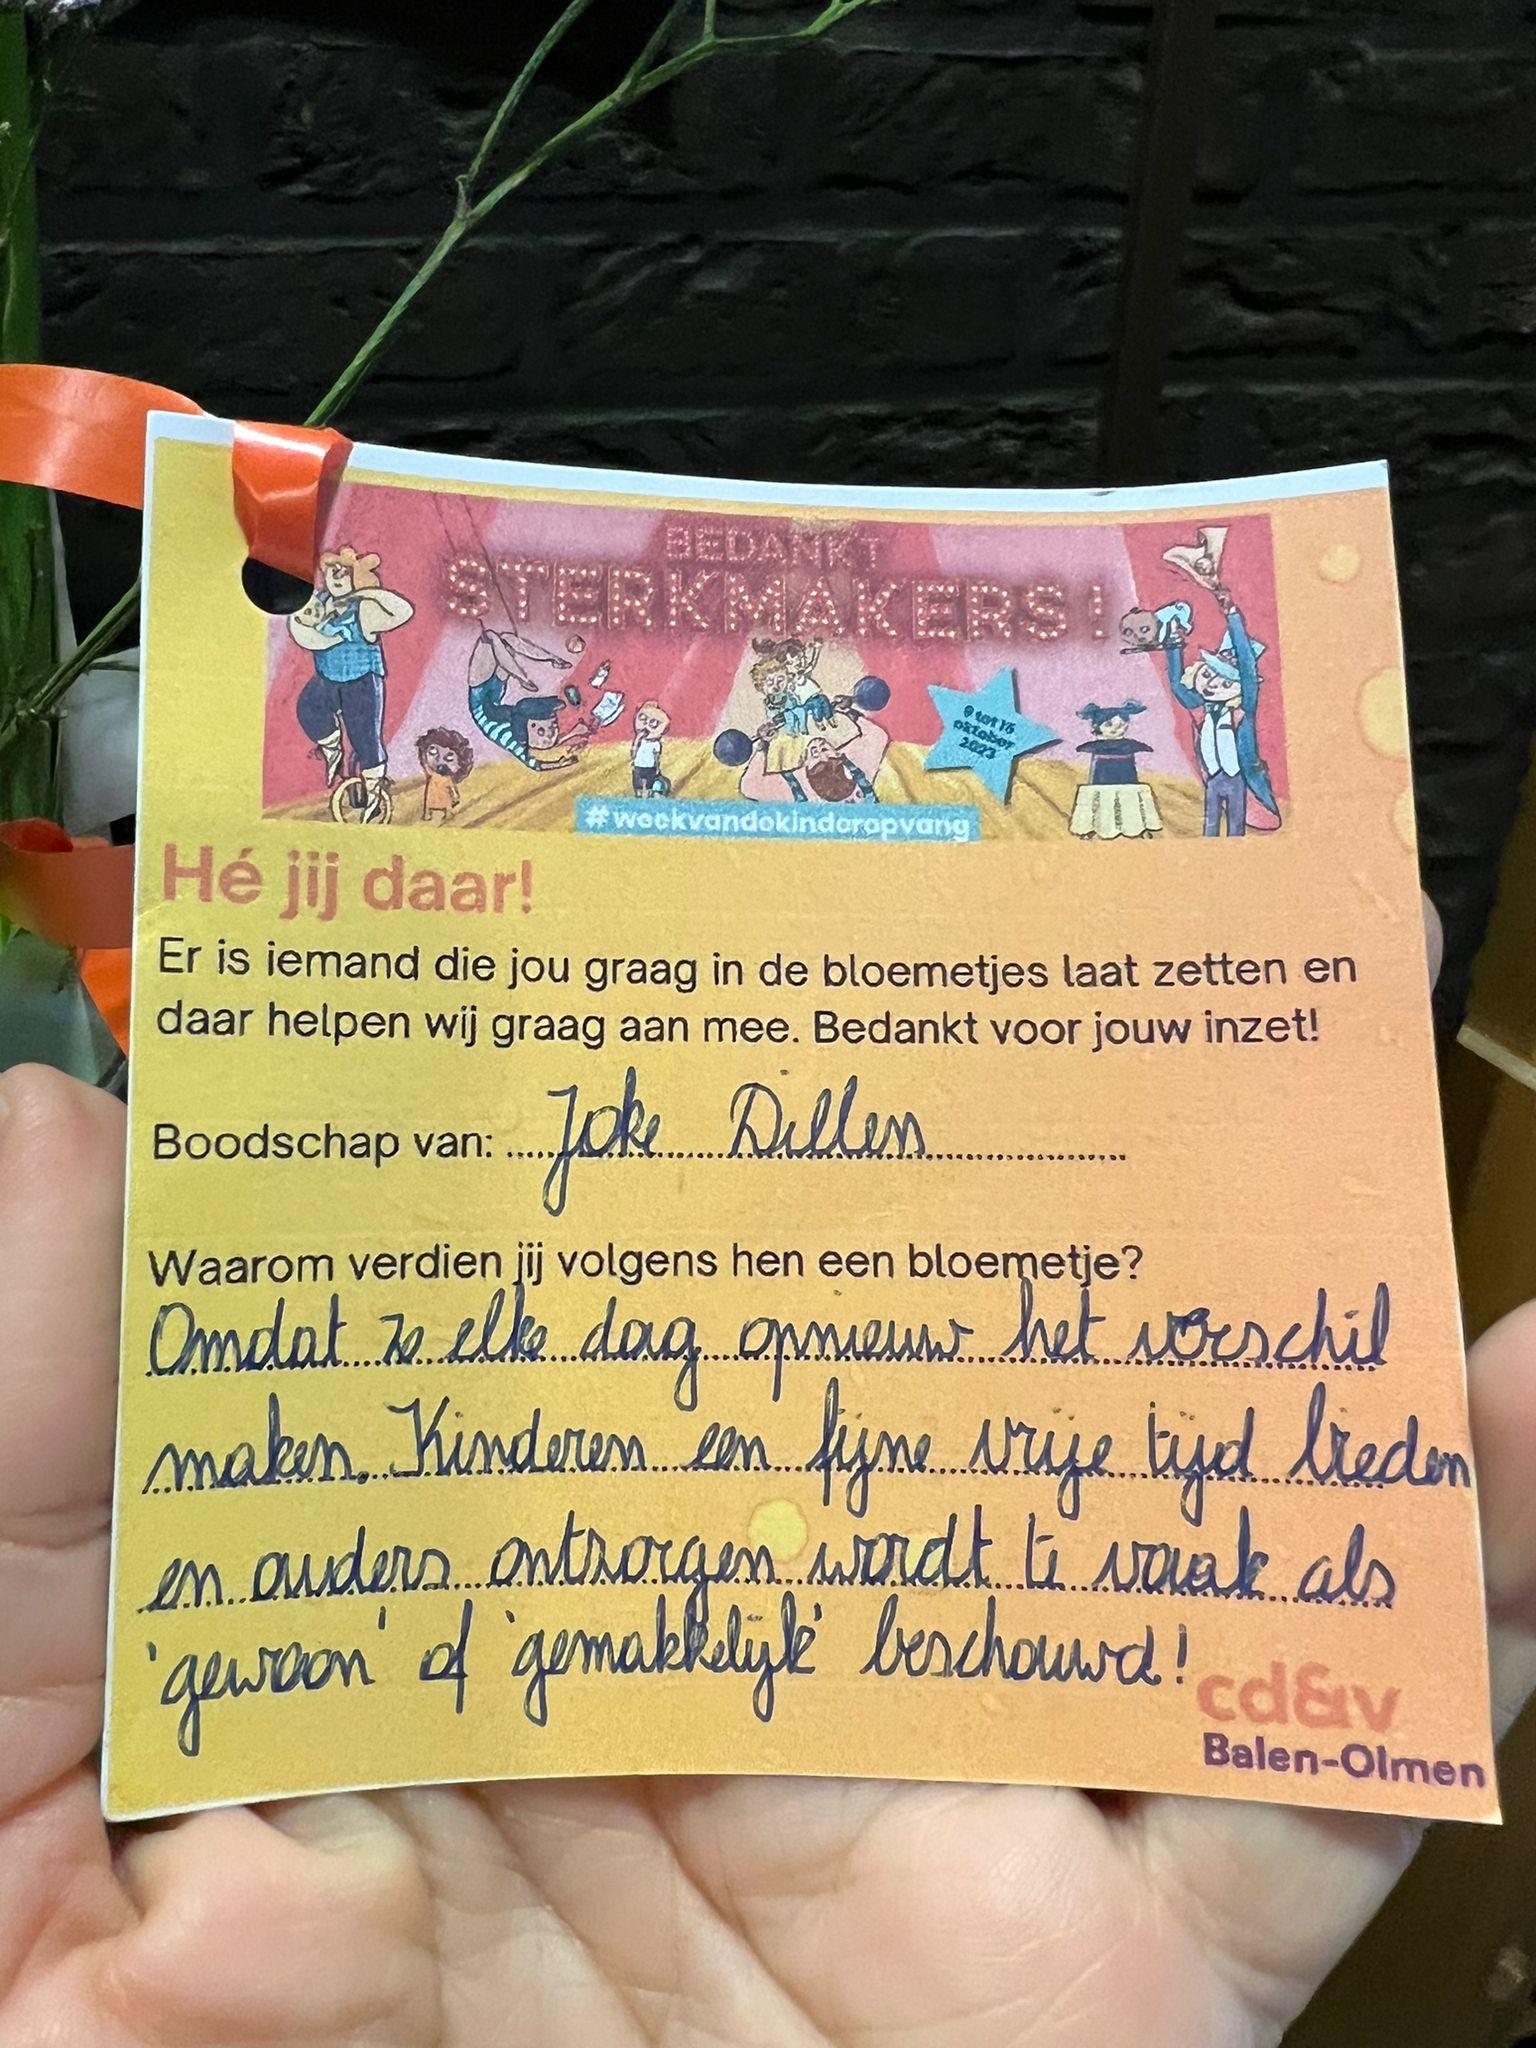 BEDANKT
STERKMAKERS!
9 tot 15
oktober
2023
#weekvandekinderopvang
Hé jij daar!
Er is iemand die jou graag in de bloemetjes laat zetten en
daar helpen wij graag aan mee. Bedankt voor jouw inzet!
Boodschap van: Joke Dillen
Waarom verdien jij volgens hen een bloemetje?
Omdat ze elke dag opnieuw het verschil
maken. Kinderen een fijne vrije tijd bieden
en ouders ontzorgen wordt te vaak als
'gewoon' of 'gemakkelijk' beschouwd!
cd&v
Balen-Olmen